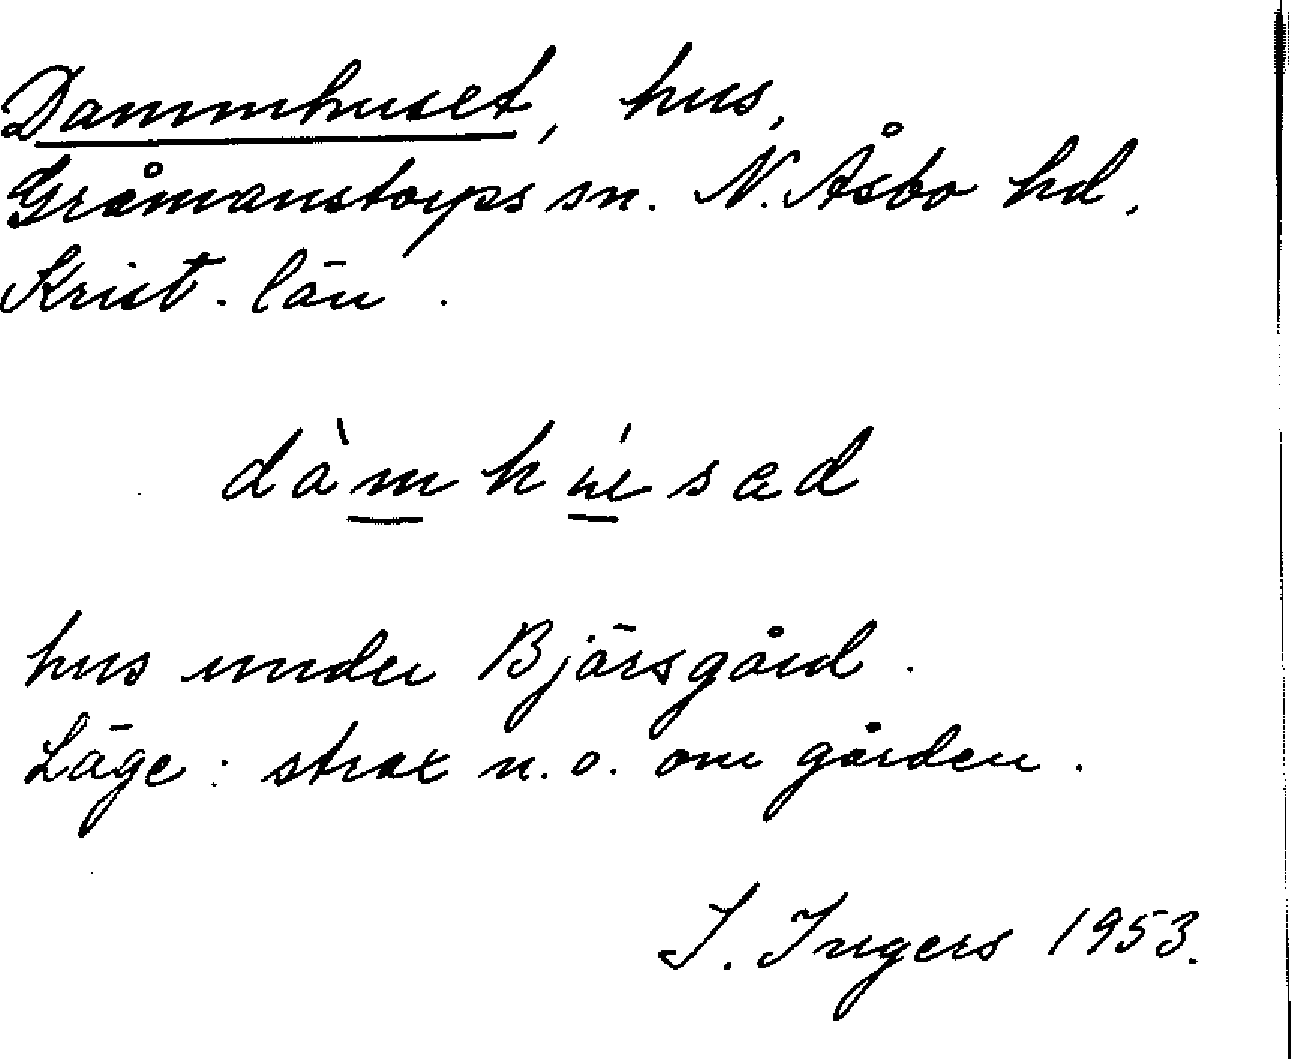 Dammhuset, hus,
Gråmanstorps sn. N. Åsbo hd.
Krist. län.
dàmhúsad
hus under Bjärsgård.
Läge: strax n.o. om gården.
I. Ingers 1953.